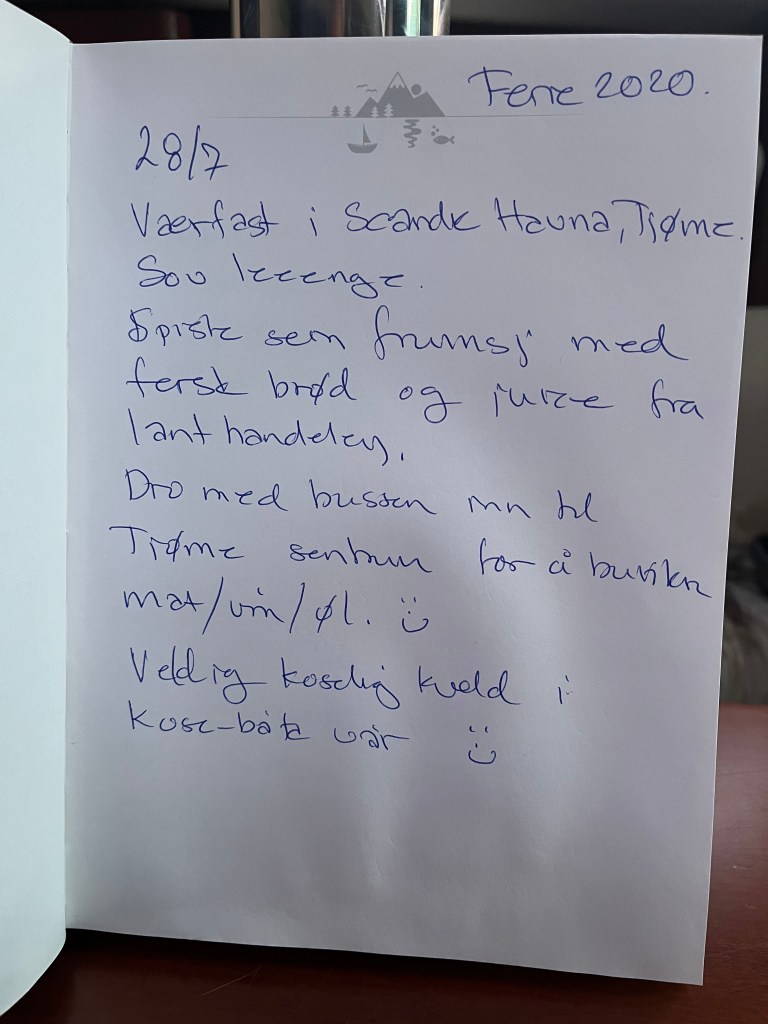 Ferie 2020.
28/7
Værfast i Scande Havna, Tjøme.
Sov leeenge.
Spiste sen frumsj med
fersk brød og juice fra
lant handelen.
Dro med bussen inn til
Tjøme sentrum for å
mat/vin/øl. :)
Veldig koselig kveld i
Kose-båten vår :)